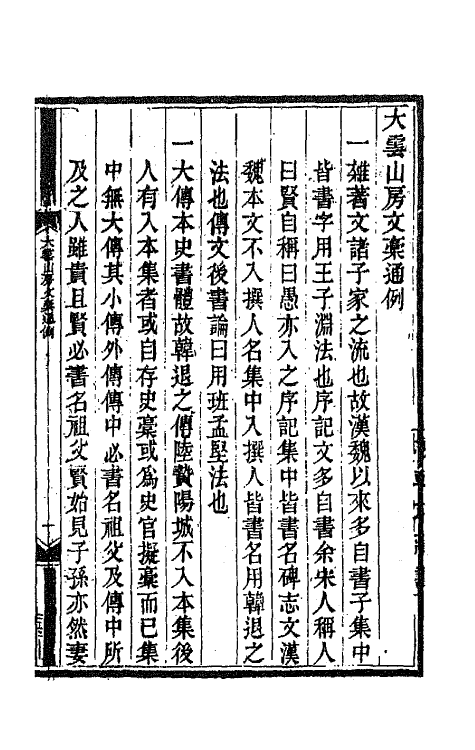 大雲山房文稾通例
一雜著文諸子家之流也故漢魏以來多自書子集中
皆書字用王子淵法也序記文多自書余宋人稱人
曰賢自稱曰愚亦入之序記集中皆書名碑志文漢
魏本文不入撰人名集中入撰人皆書名用韓退之
法也傳文後書論曰用班孟堅法也
一大傳本史書體故韓退之傳陸贄陽城不入本集後
人有入本集者或自存史稾或爲史官擬稾而已集
中無大傳其小傳外傳傳中必書名祖父及傳中所
及之人雖貴且賢必書名祖父賢始見子孫亦然妻
大雲山房文稾通例
一